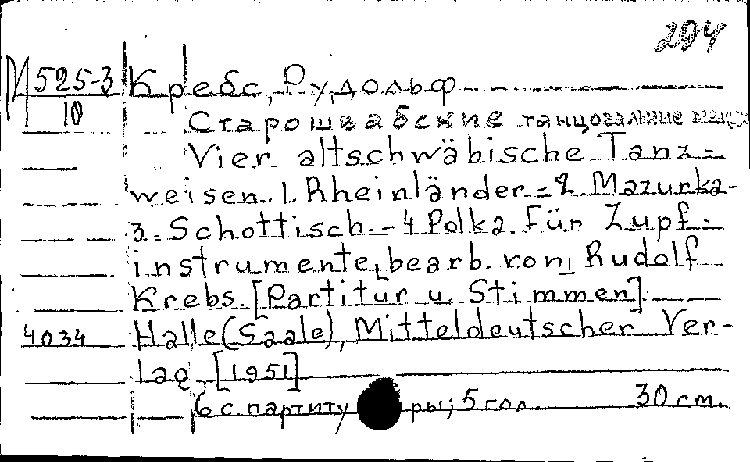 204
М 525-3
10
Кребс, Рудольф
Старошвабские танцовальные
Vier altschwäbische Tanz-
weisen. 1. Rheinländer - 2. Mazurka-
3. Schottisch - 4 Polka. Für Zupf-
instrumente bearb. von Rudolf
Krebs. [Partitur u. Stimmen]
4034 Halle (Saale), Mitteldeutscher Ver-
lag [1951]
6 с. партитуры; 5 гол. 30 см.